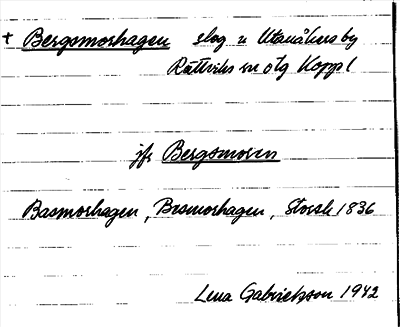 + Bergsmorhagen slog u Utanåkers by
Rättviks sn otg Koppl
jfr Bergsmoren
Basmorhagen, Besmorhagen, Storsk 1836
Lena Gabrielsson 1942